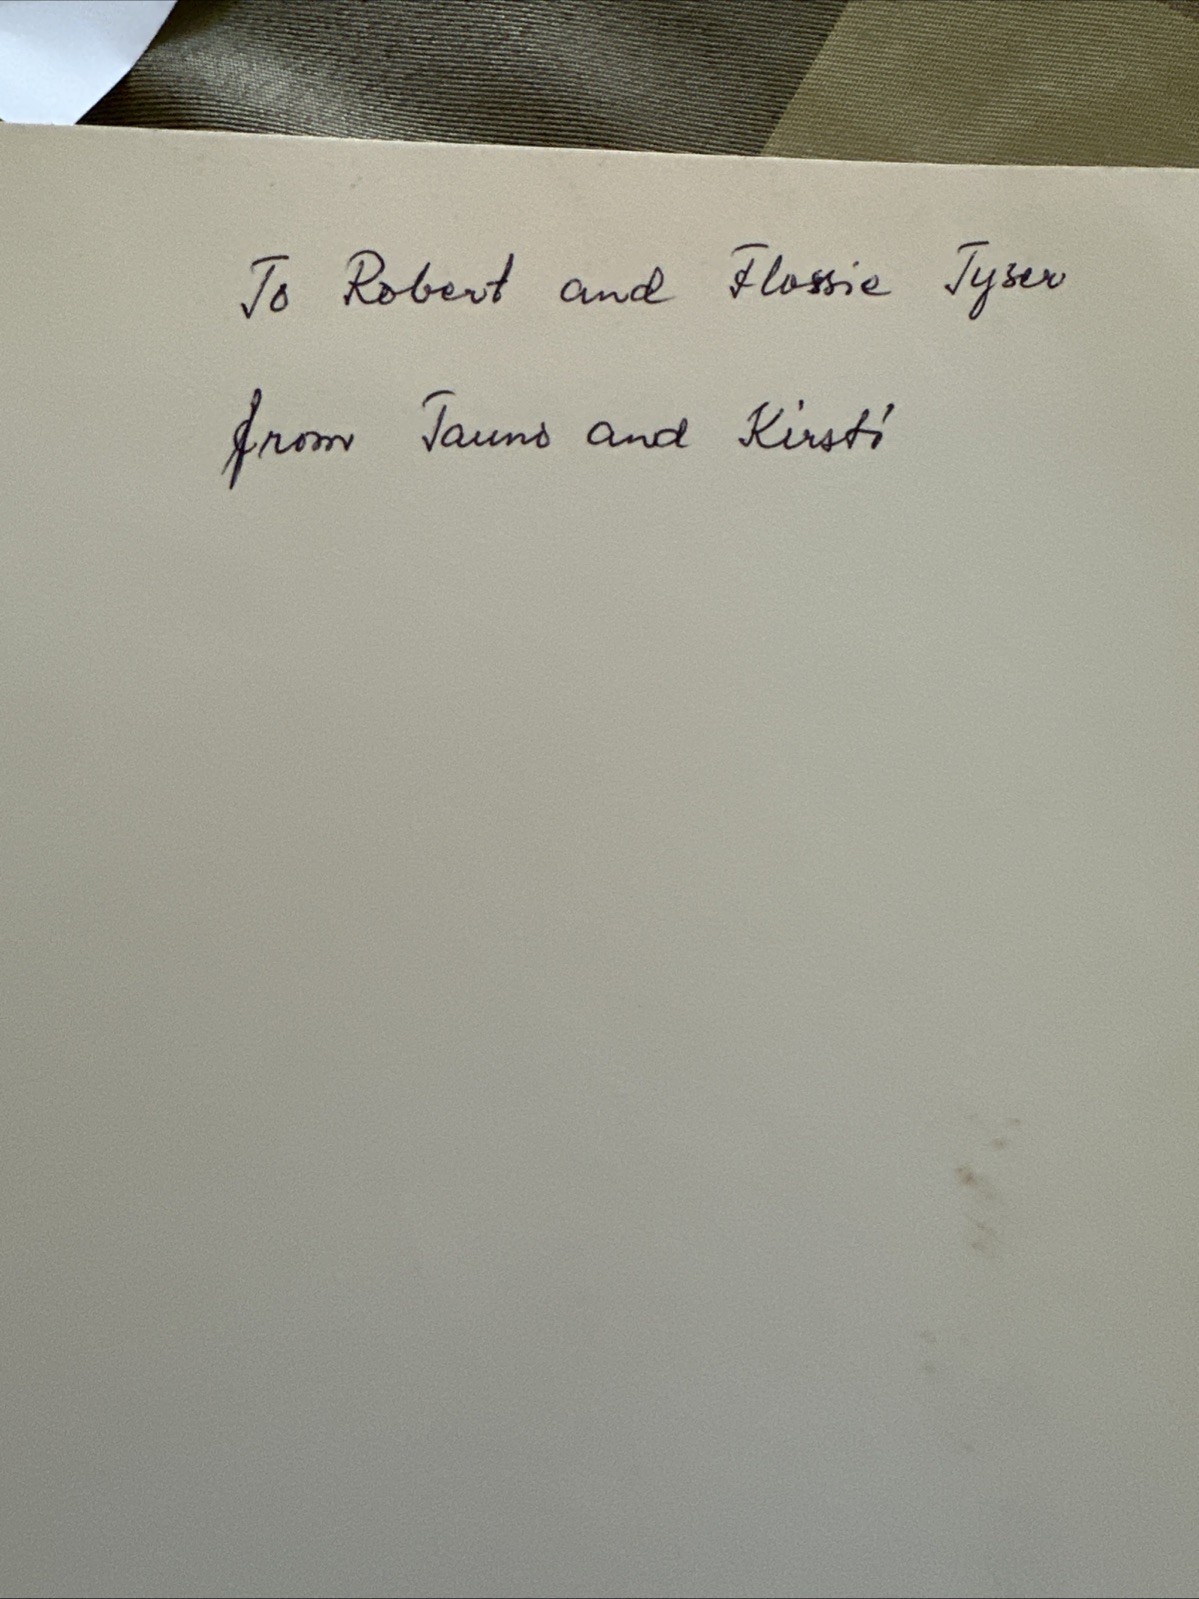 To Robert and Flossie Tyser
from Tauno and Kirsti